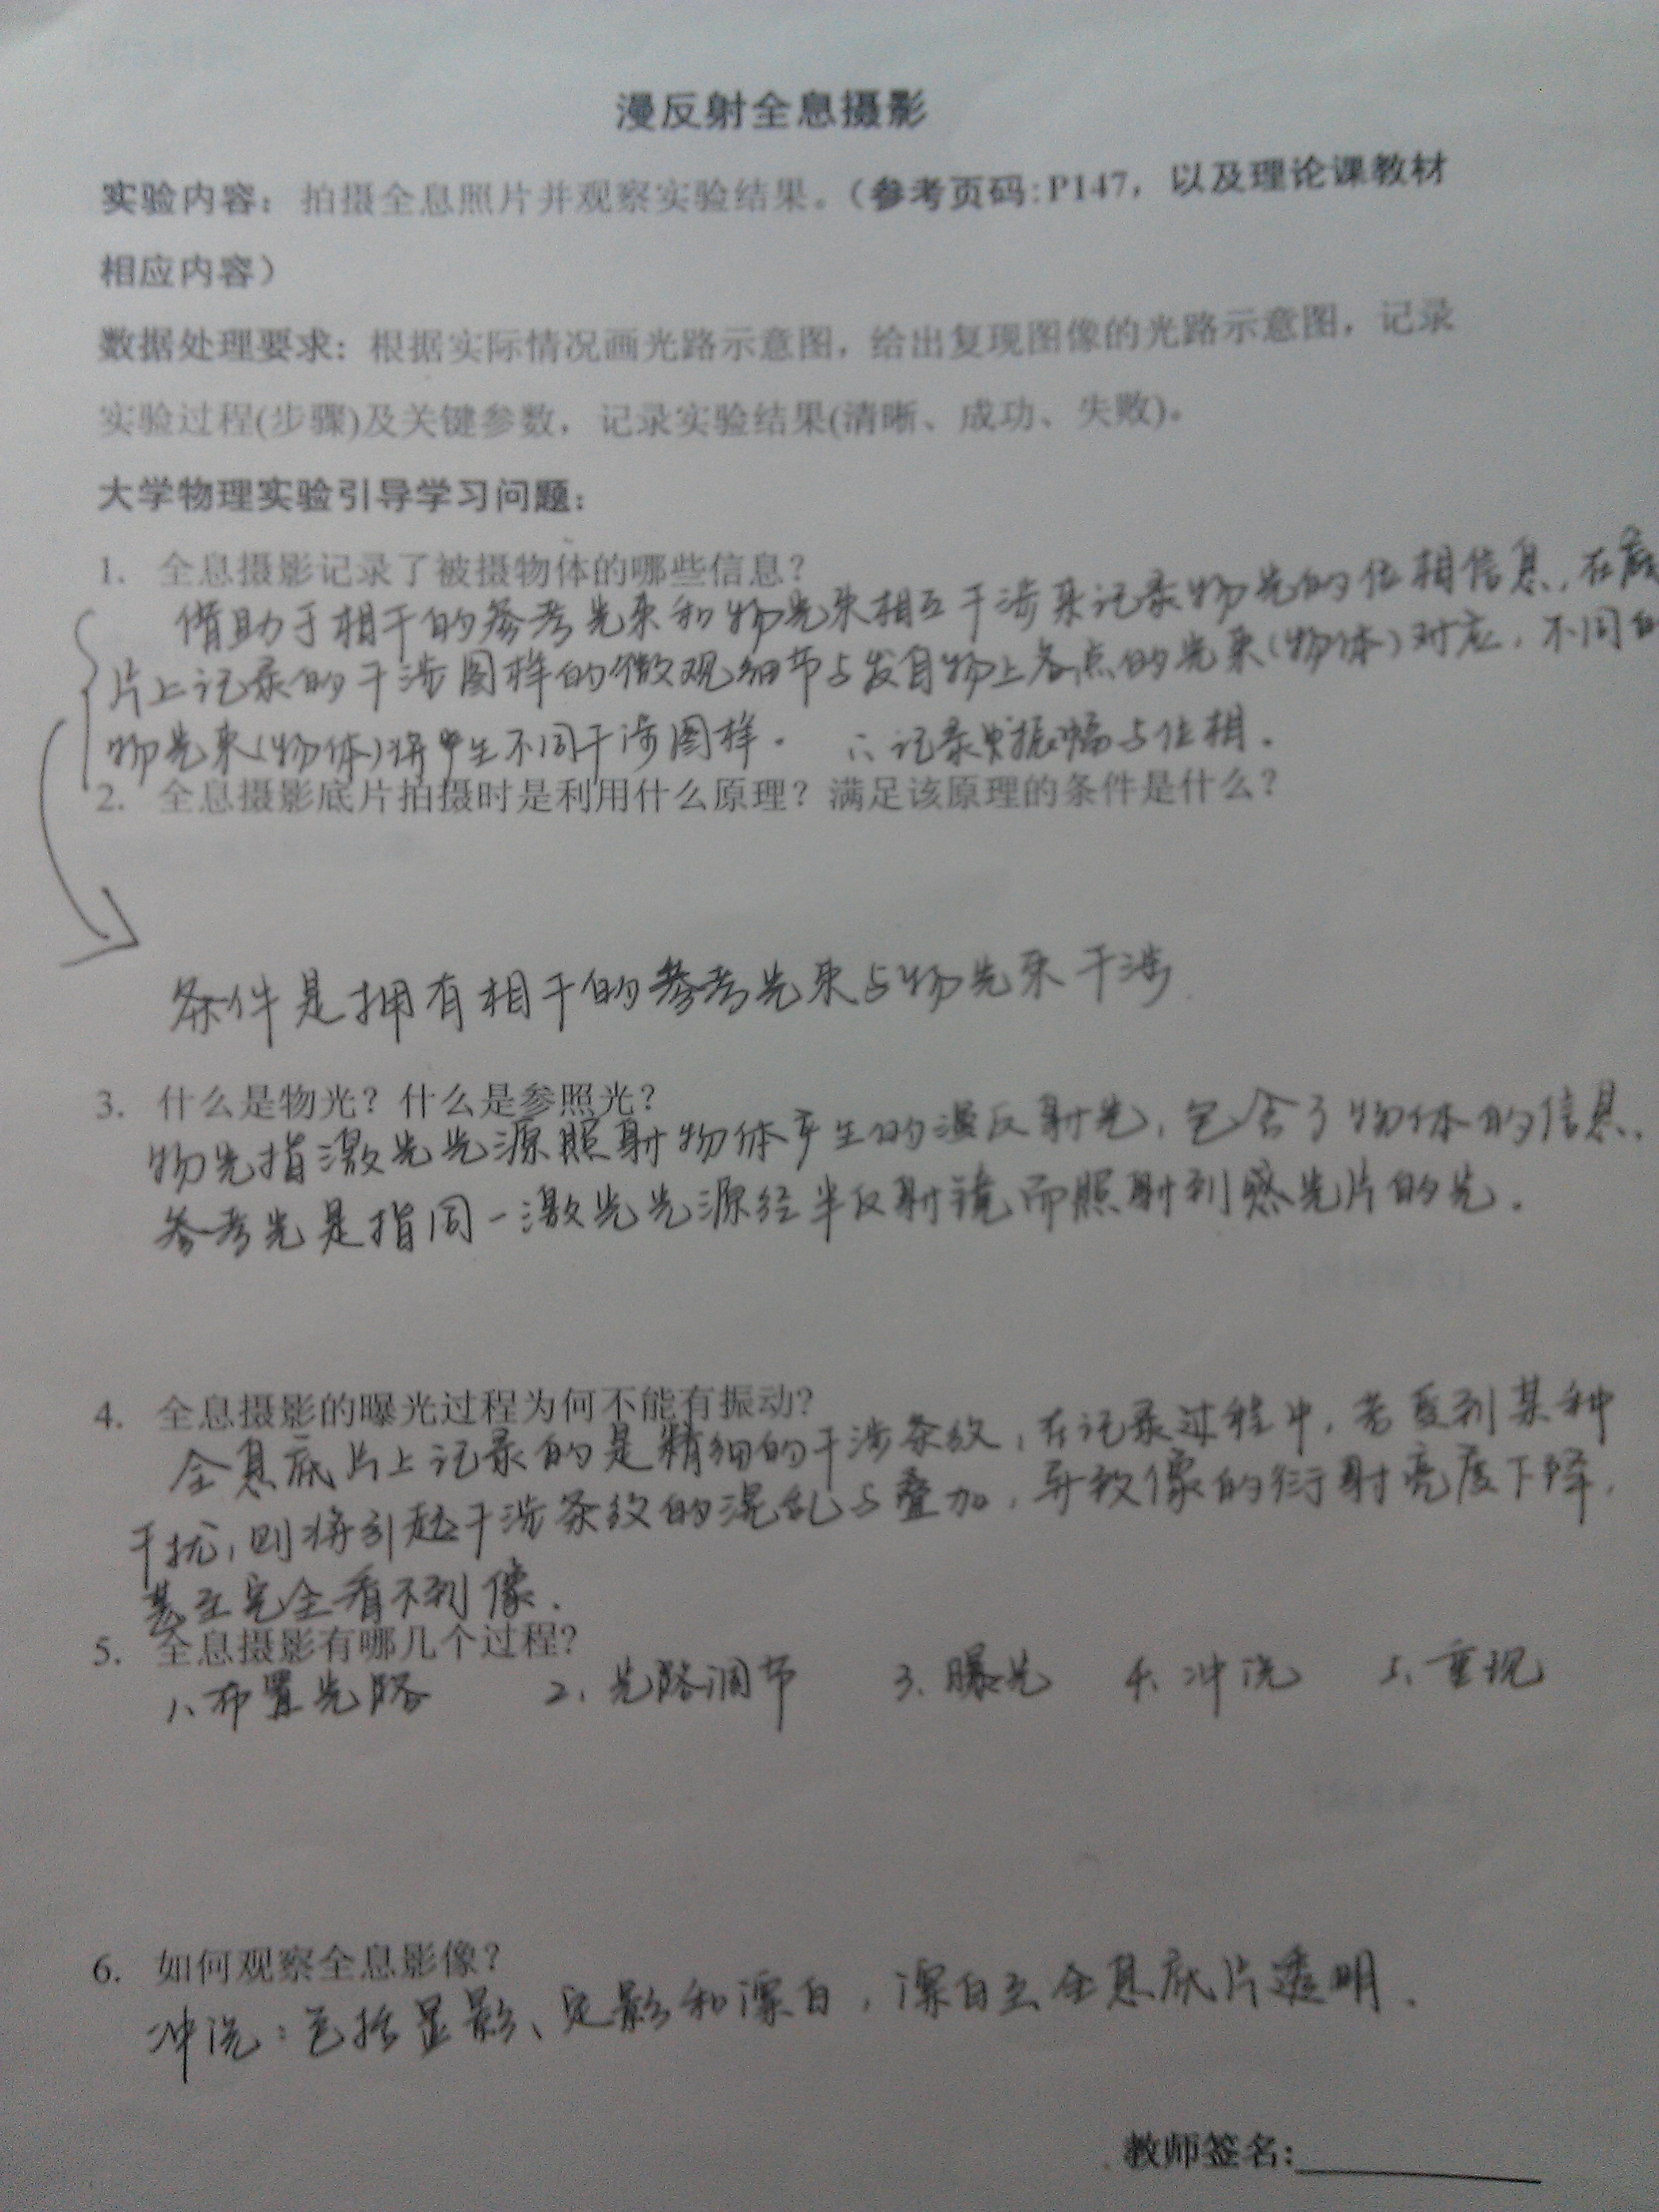 漫反射全息摄影
实验内容：拍摄全息照片并观察实验结果。（参考页码：P147，以及理论课教材
相应内容）
数据处理要求：根据实际情况画光路示意图，给出复现图像的光路示意图，记录
实验过程(步骤)及关键参数，记录实验结果(清晰、成功、失败)。
大学物理实验引导学习问题：
1. 全息摄影记录了被摄物体的哪些信息？
借助于相干的参考光束和物光束相互干涉来记录物光的位相信息，在底
片上记录的干涉图样的微观细节与发自物上各点的光束(物体)对应，不同的
物光束(物体)将产生不同干涉图样． ∴记录振幅与位相．
2. 全息摄影底片拍摄时是利用什么原理？满足该原理的条件是什么？
条件是拥有相干的参考光束与物光束干涉
3. 什么是物光？什么是参照光？
物光指激光光源照射物体产生的漫反射光，包含了物体的信息．
参考光是指同一激光光源经半反射镜而照射到感光片的光．
4. 全息摄影的曝光过程为何不能有振动？
全息底片上记录的是精细的干涉条纹，在记录过程中，若受到某种
干扰，则将引起干涉条纹的混乱与叠加，导致像的衍射亮度下降，
甚至完全看不到像．
5. 全息摄影有哪几个过程？
1、布置光路 2、光路调节 3、曝光 4、冲洗 5、重现
6. 如何观察全息影像？
冲洗：包括显影、定影和漂白，漂白至全息底片透明．
教师签名：